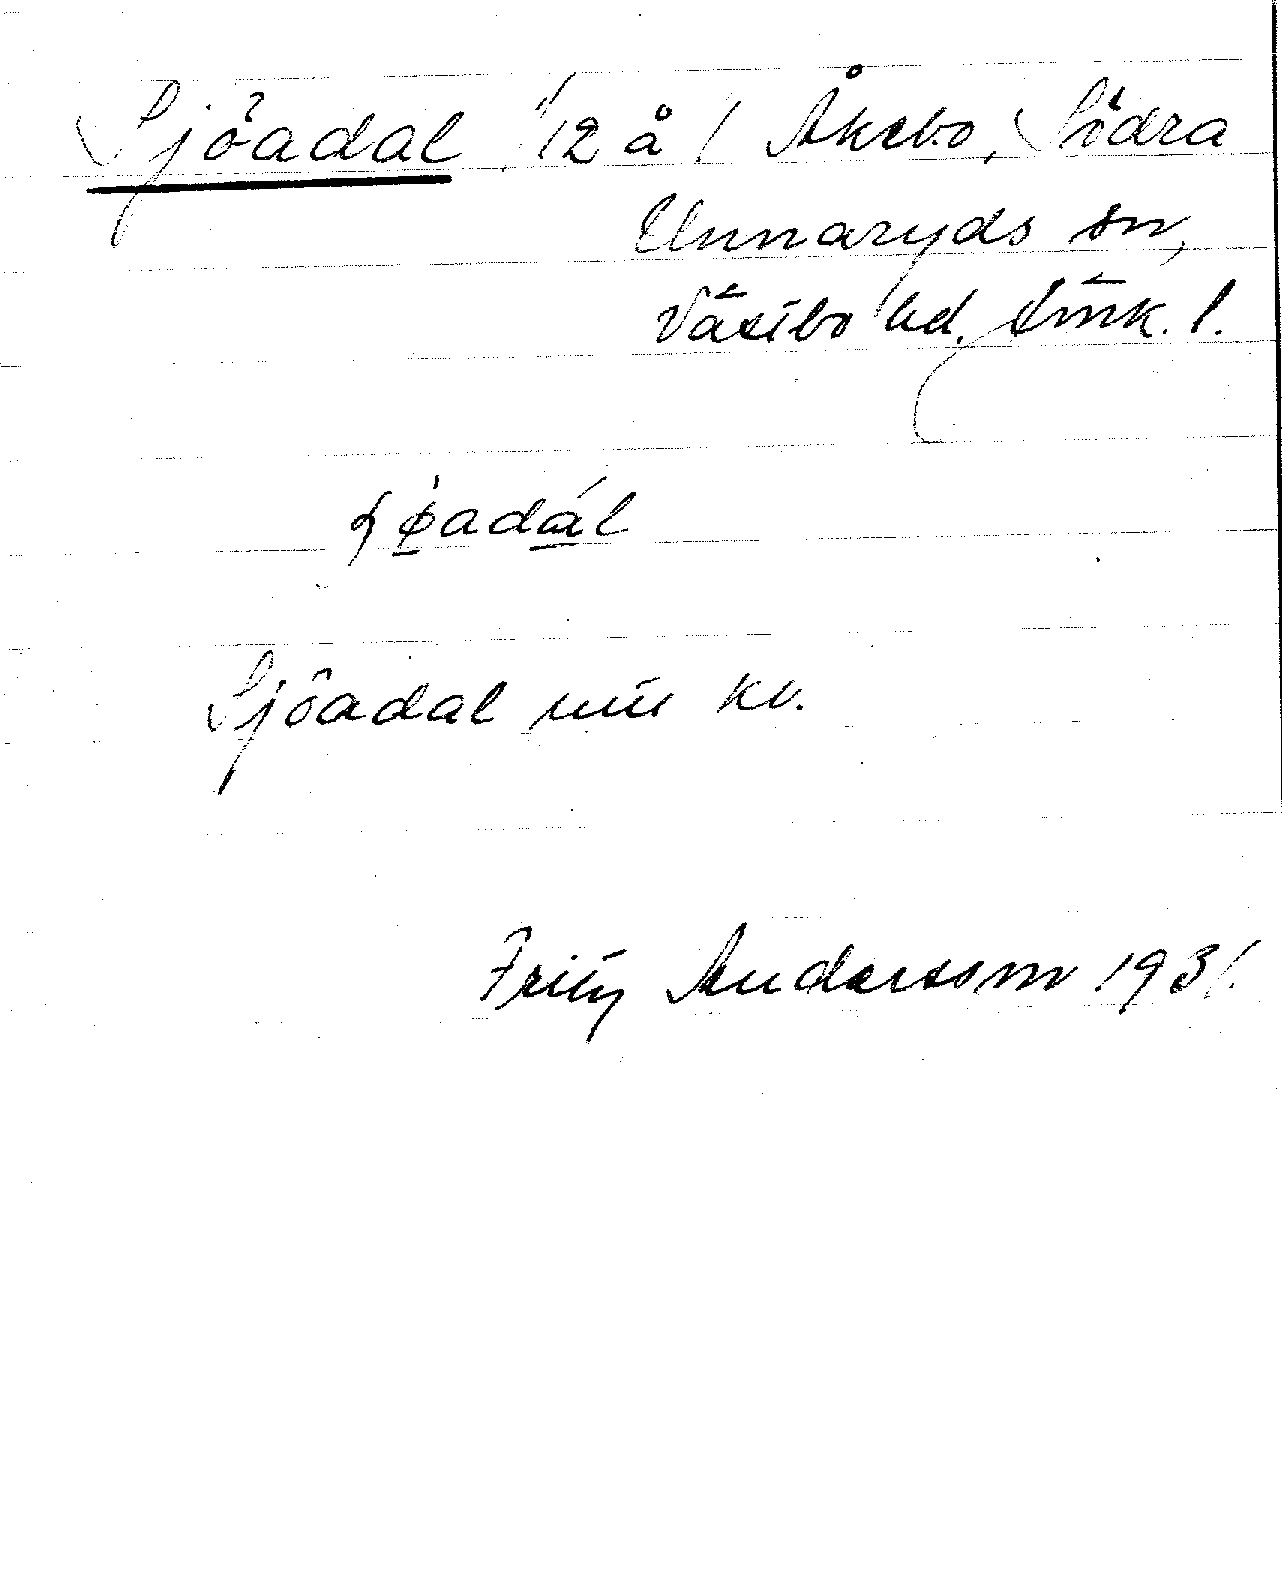 Sjöadal 1/2 å / Åkebo, Södra
Unnaryds sn,
Västbo hd. Smk. l.
Sjöadal
Fritz Andersson 1931.